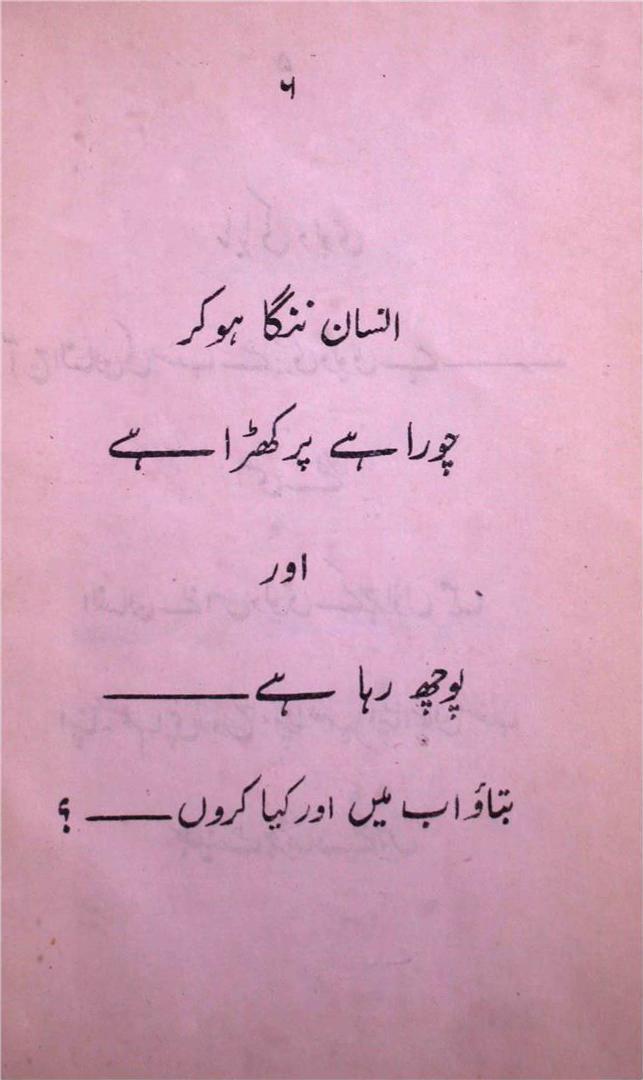 ۶
انسان ننگا ہوکر
چوراہے پر کھڑا ہے
اور
پوچھ رہا ہے ———
بتاؤ اب میں اور کیا کروں —— ؟